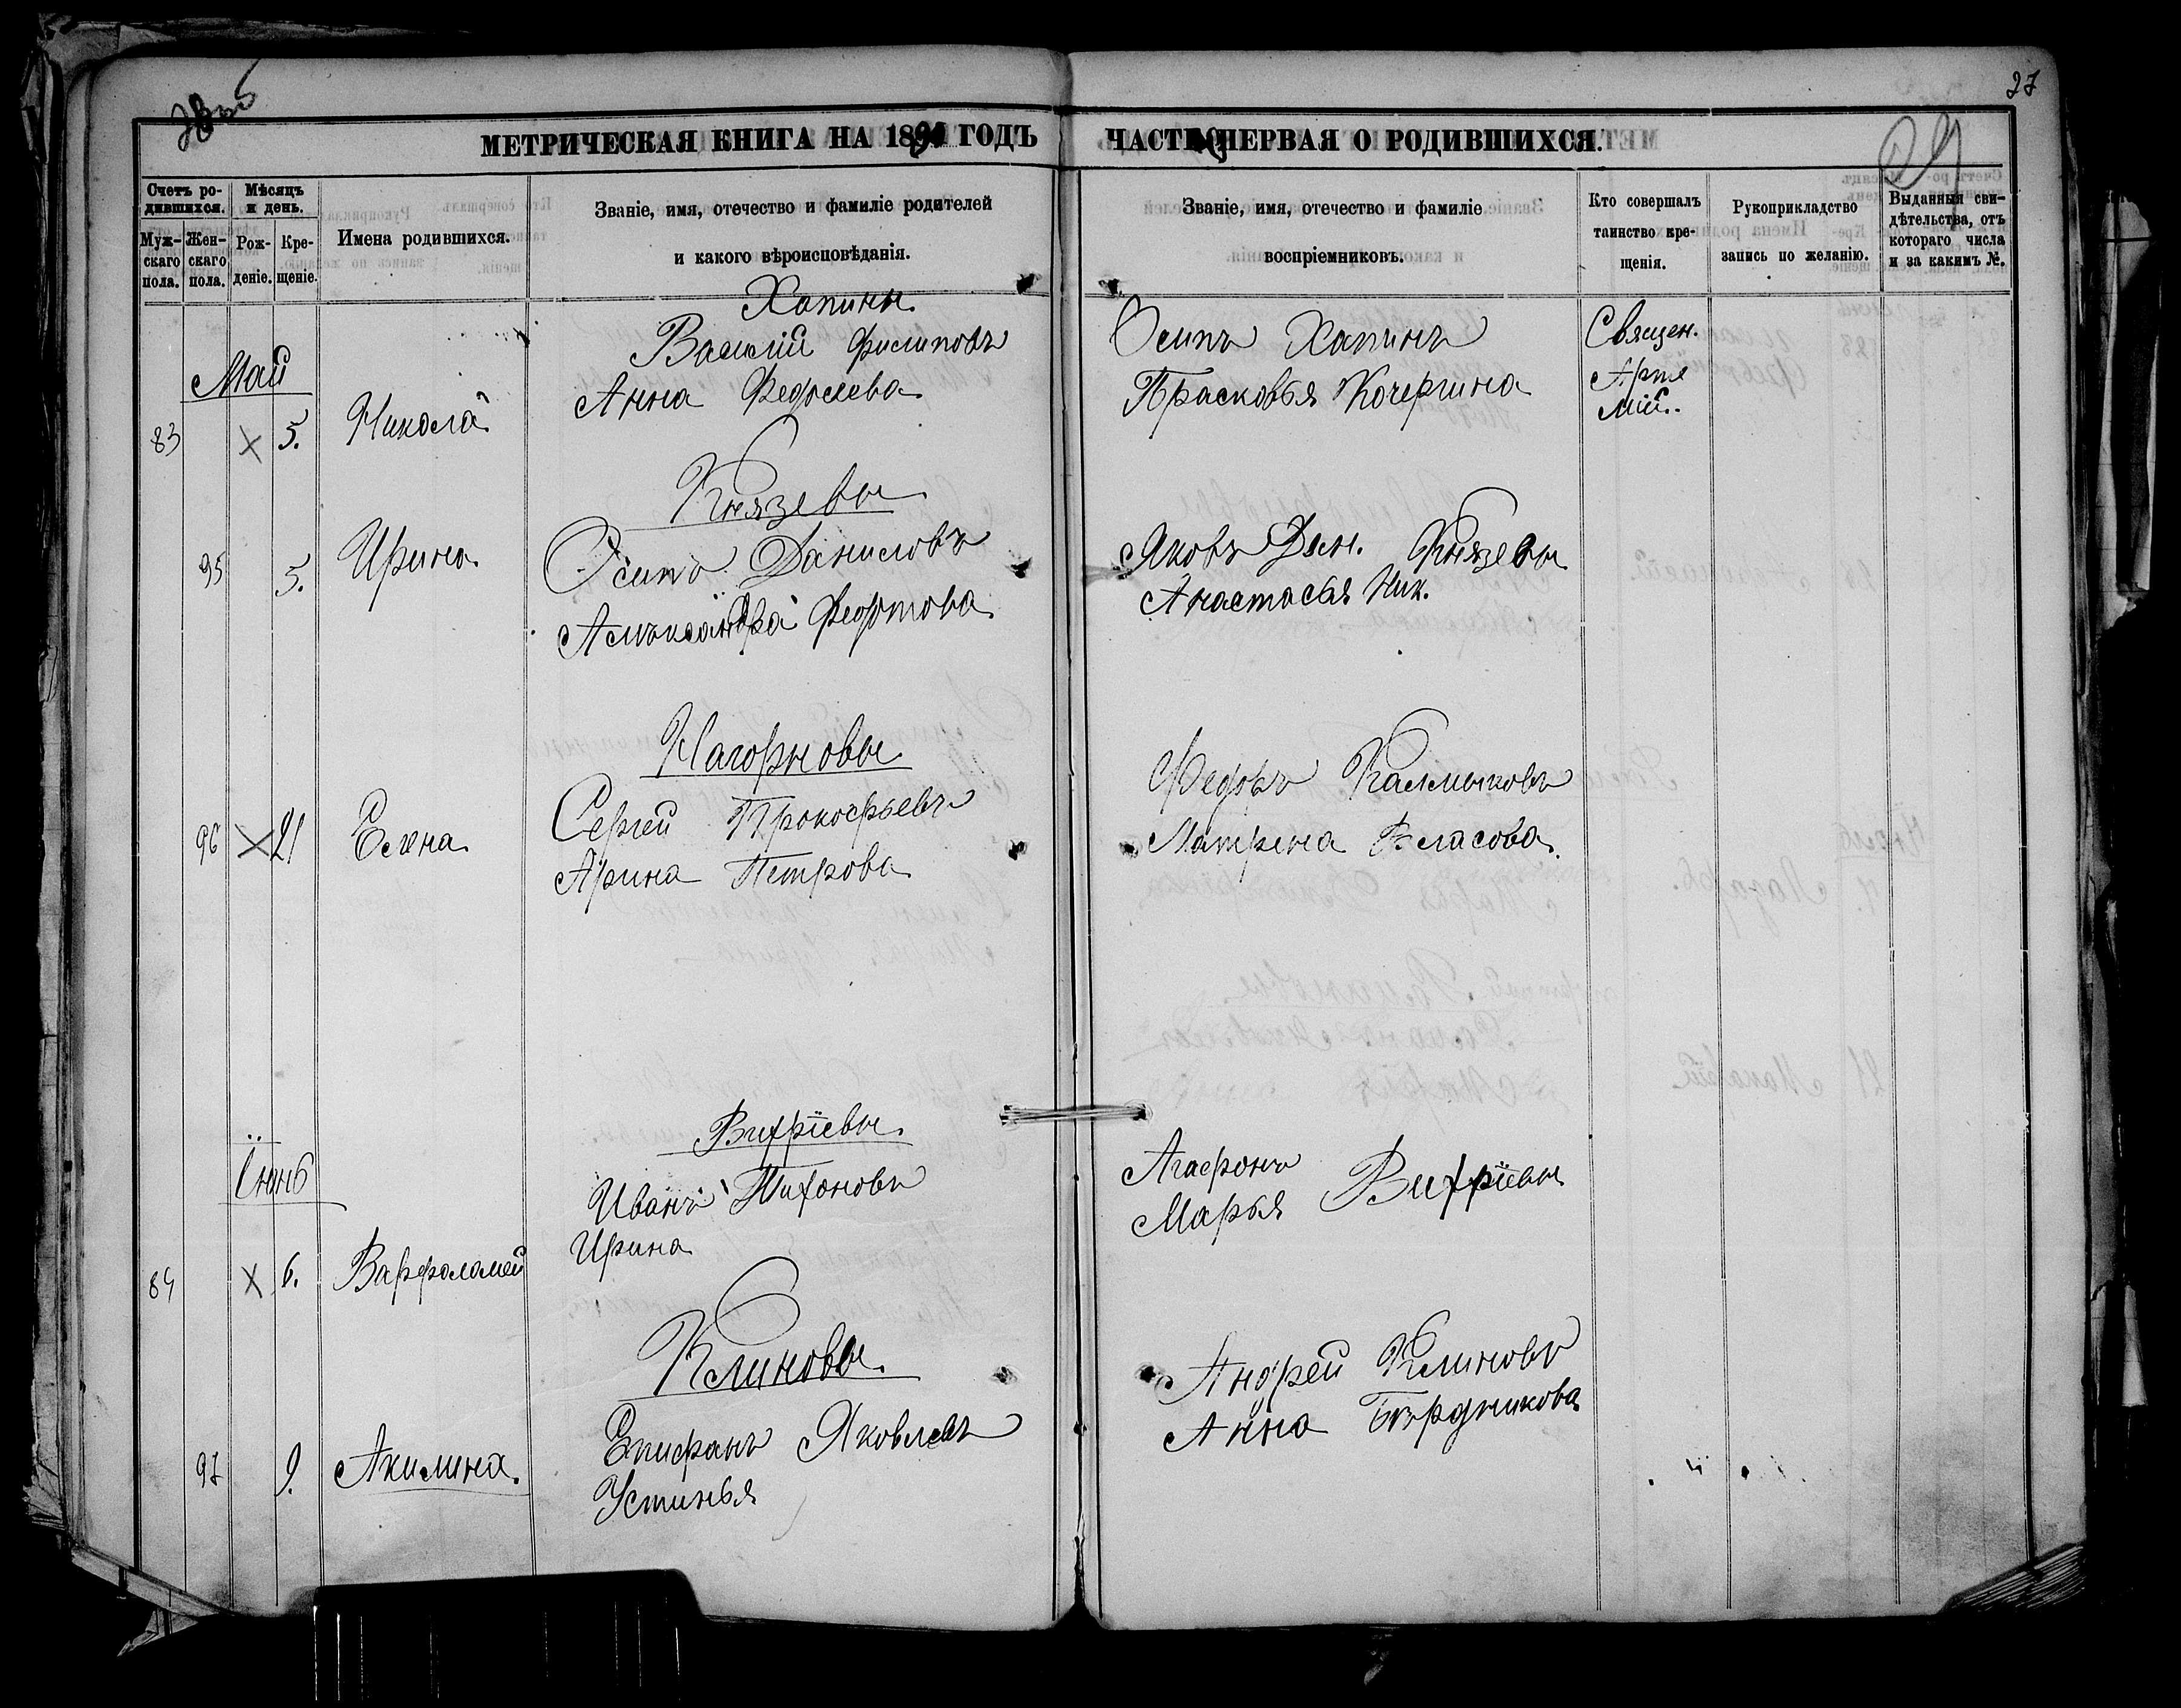 27
29
МЕТРИЧЕСКАЯ КНИГА НА 189 ГОДЪ
ЧАСТЬ ПЕРВАЯ О РОДИВШИХСЯ.
Счетъ ро-
дившихся.
Муж-
скаго
пола.
Жен-
скаго
пола.
Мѣсяцъ
и день.
Рож-
деніе.
Кре-
щеніе.
Имена родившихся.
Званіе, имя, отечество и фамиліе родителей
и какого вѣроисповѣданія.
Званіе, имя, отечество и фамиліе
воспріемниковъ.
Кто совершалъ
таинство кре-
щенія.
Рукоприкладство
запись по желанію.
Выданныя сви-
дѣтельства, отъ
котораго числа
и за какимъ №.
Май
83 х 5. Николай
Хапины
Василій Филиповъ
Анна Федосеева
Осипъ Хапинъ
Прасковья Кочергина
Священ.
Арте
мій.
95 5. Ирина
Князевы
Осипъ Даниловъ
Александра Федотова
Яковъ Дан. Князевы
Анастасья Ник.
96 х 21 Елена
Нагорновы
Сергей Прокофьевъ
Арина Петрова
Федоръ Калмыковъ
Матрена Власова
Іюнь
84 х 6. Варфоломей
Вихріевы
Иванъ Тихоновъ
Ирина
Агафонъ
Марья Вихріевы
97 9. Акилина.
Климовы
Епифанъ Яковлевъ
Устинья
Андрей Климовъ
Анна Бердникова